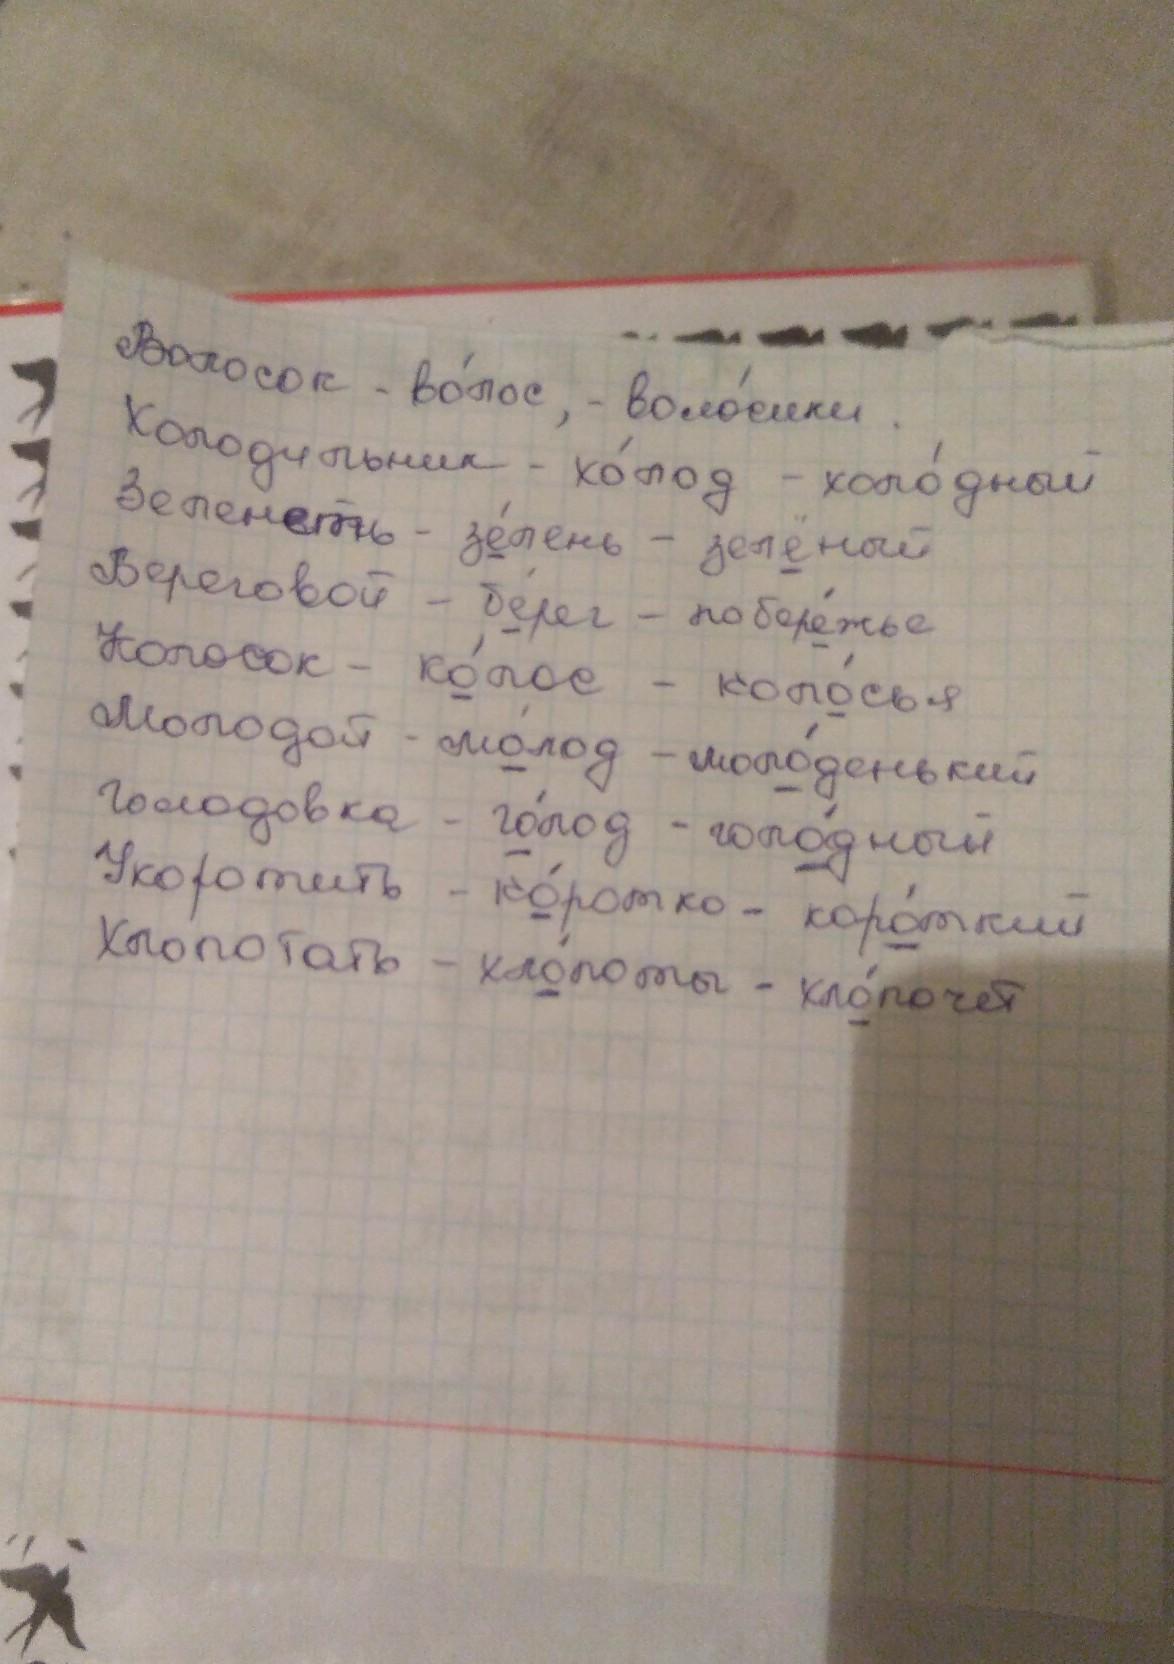 Волосок - во́лос, - воло́сики.
Холодильник - хо́лод - холо́дный
Зеленеть - зе́лень - зелёный
Береговой - бе́рег - побере́жье
Колосок - ко́лос - коло́сья
Молодой - мо́лод - моло́денький
Голодовка - го́лод - голо́дный
Укоротить - ко́ротко - коро́ткий
Хлопотать - хло́поты - хло́почет